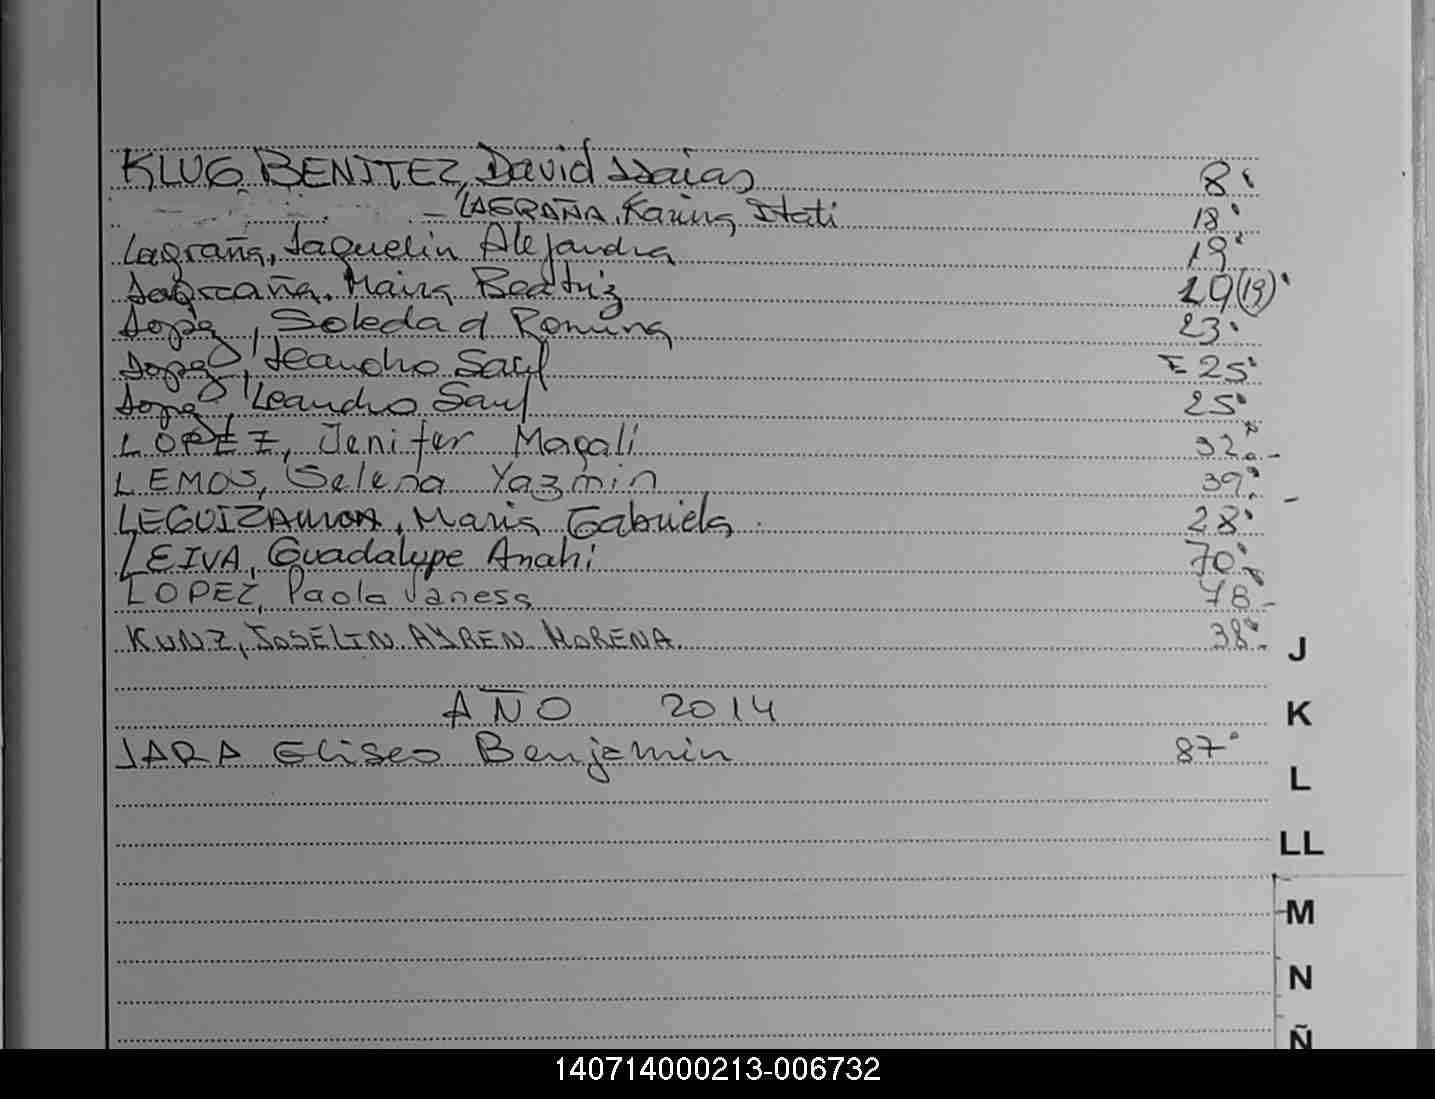 KLUG BENITEZ, David Isaias 8
- LAGRAÑA, Karina Itati 18
Lagraña, Jaquelin Alejandra 19
Lagraña, Maira Beatriz 19 (19)
Lopez, Soledad Romina 23
Lopez, Leandro Saul 25
Lopez, Leandro Saul 25
LOPEZ, Jenifer Magali 32
LEMOS, Selena Yazmin 39
LEGUIZAMON, Maria Gabriela 28
LEIVA, Guadalupe Anahi 70
LOPEZ, Paola Vanessa 78
KUNZ, JOSELIN AYREN MORENA. 38
J
AÑO 2014
K
JARA Eliseo Benjamin 87
L
LL
M
N
Ñ
140714000213-006732